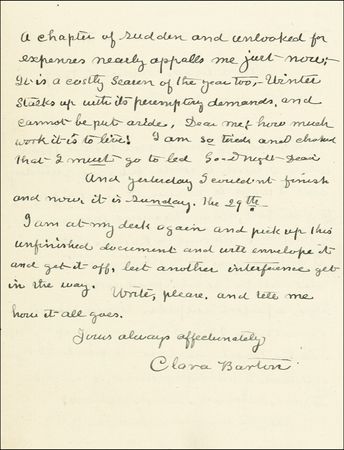 A chapter of sudden and unlooked for
expenses nearly appalls me just now;
It is a costly season of the year too,- Winter
Stalks up with its peremptory demands, and
cannot be put aside, Dear me, how much
work it is to live! I am so tired and choked
that I must go to bed Good night Dear
And yesterday I couldnt finish
and now it is Sunday. The 29th
I am at my desk again and pick up this
unfinished document and will envelope it
and get it off, lest another interference get
in the way. Write, please, and tell me
how it all goes.
Yours always affectionately
Clara Barton